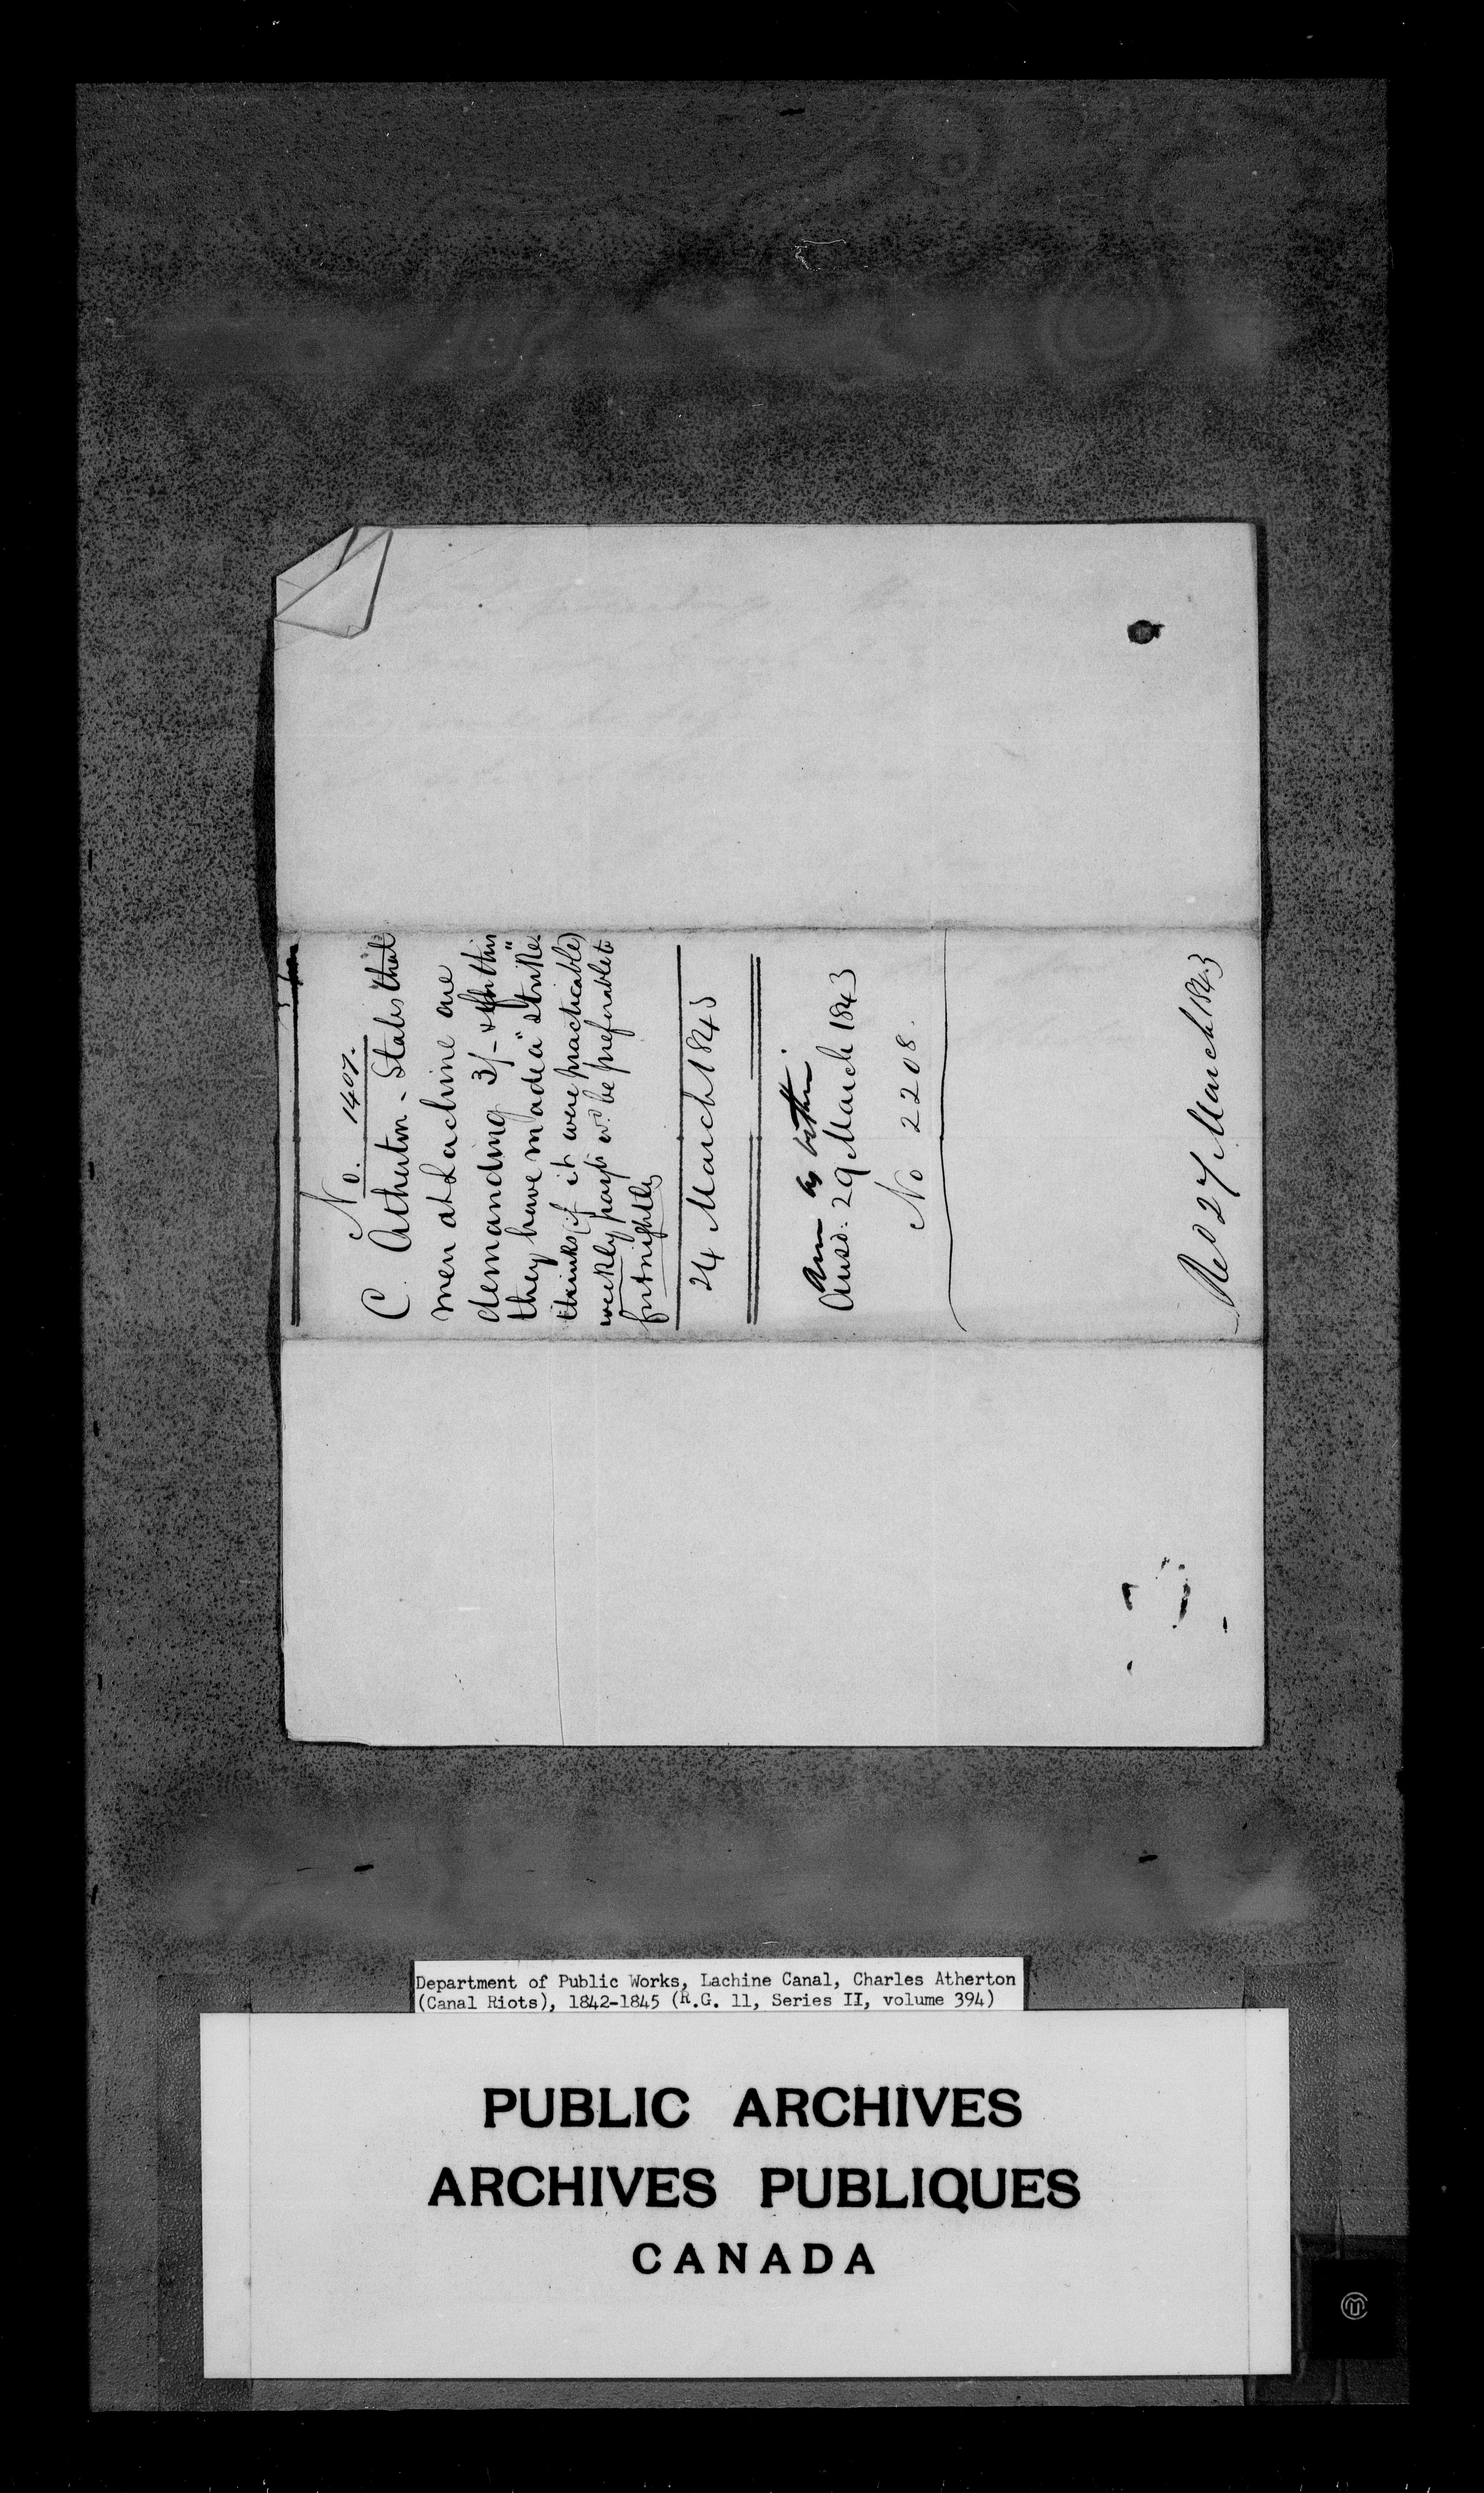 No. 1407.
C. Atherton - States that
men at Lachine are
demanding 3/- & for this
they have made a "strike"
thinks (if it were practicable)
weekly payts wd. be preferable to
fortnightly
24 March 1843
Ansd. 29 March 1843
No 2208.
Red 27 March 1843
Department of Public Works, Lachine Canal, Charles Atherton
(Canal Riots), 1842-1845 (R.G. 11, Series II, volume 394)
PUBLIC ARCHIVES
ARCHIVES PUBLIQUES
CANADA